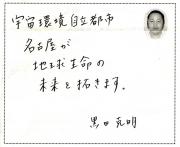 宇宙環境自立都市
名古屋が
地球生命の
未来を拓きます。
黒田克明